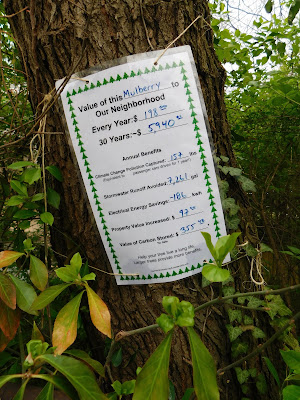 Value of this Mulberry to
Our Neighborhood
Every Year:$ 198 00
30 Years:~$ 5940 00
Annual Benefits
Climate Change Pollution Captured: 157 lbs
passenger cars driven for 1 year)
Stormwater Runoff Avoided: 7,261 gal
Electrical Energy Savings: ~186 kwh
Property Value Increased: $ 97 00
Value of Carbon Stored: $ 355 00
To Date
Help your tree live a long life,
larger trees provide more benefits.